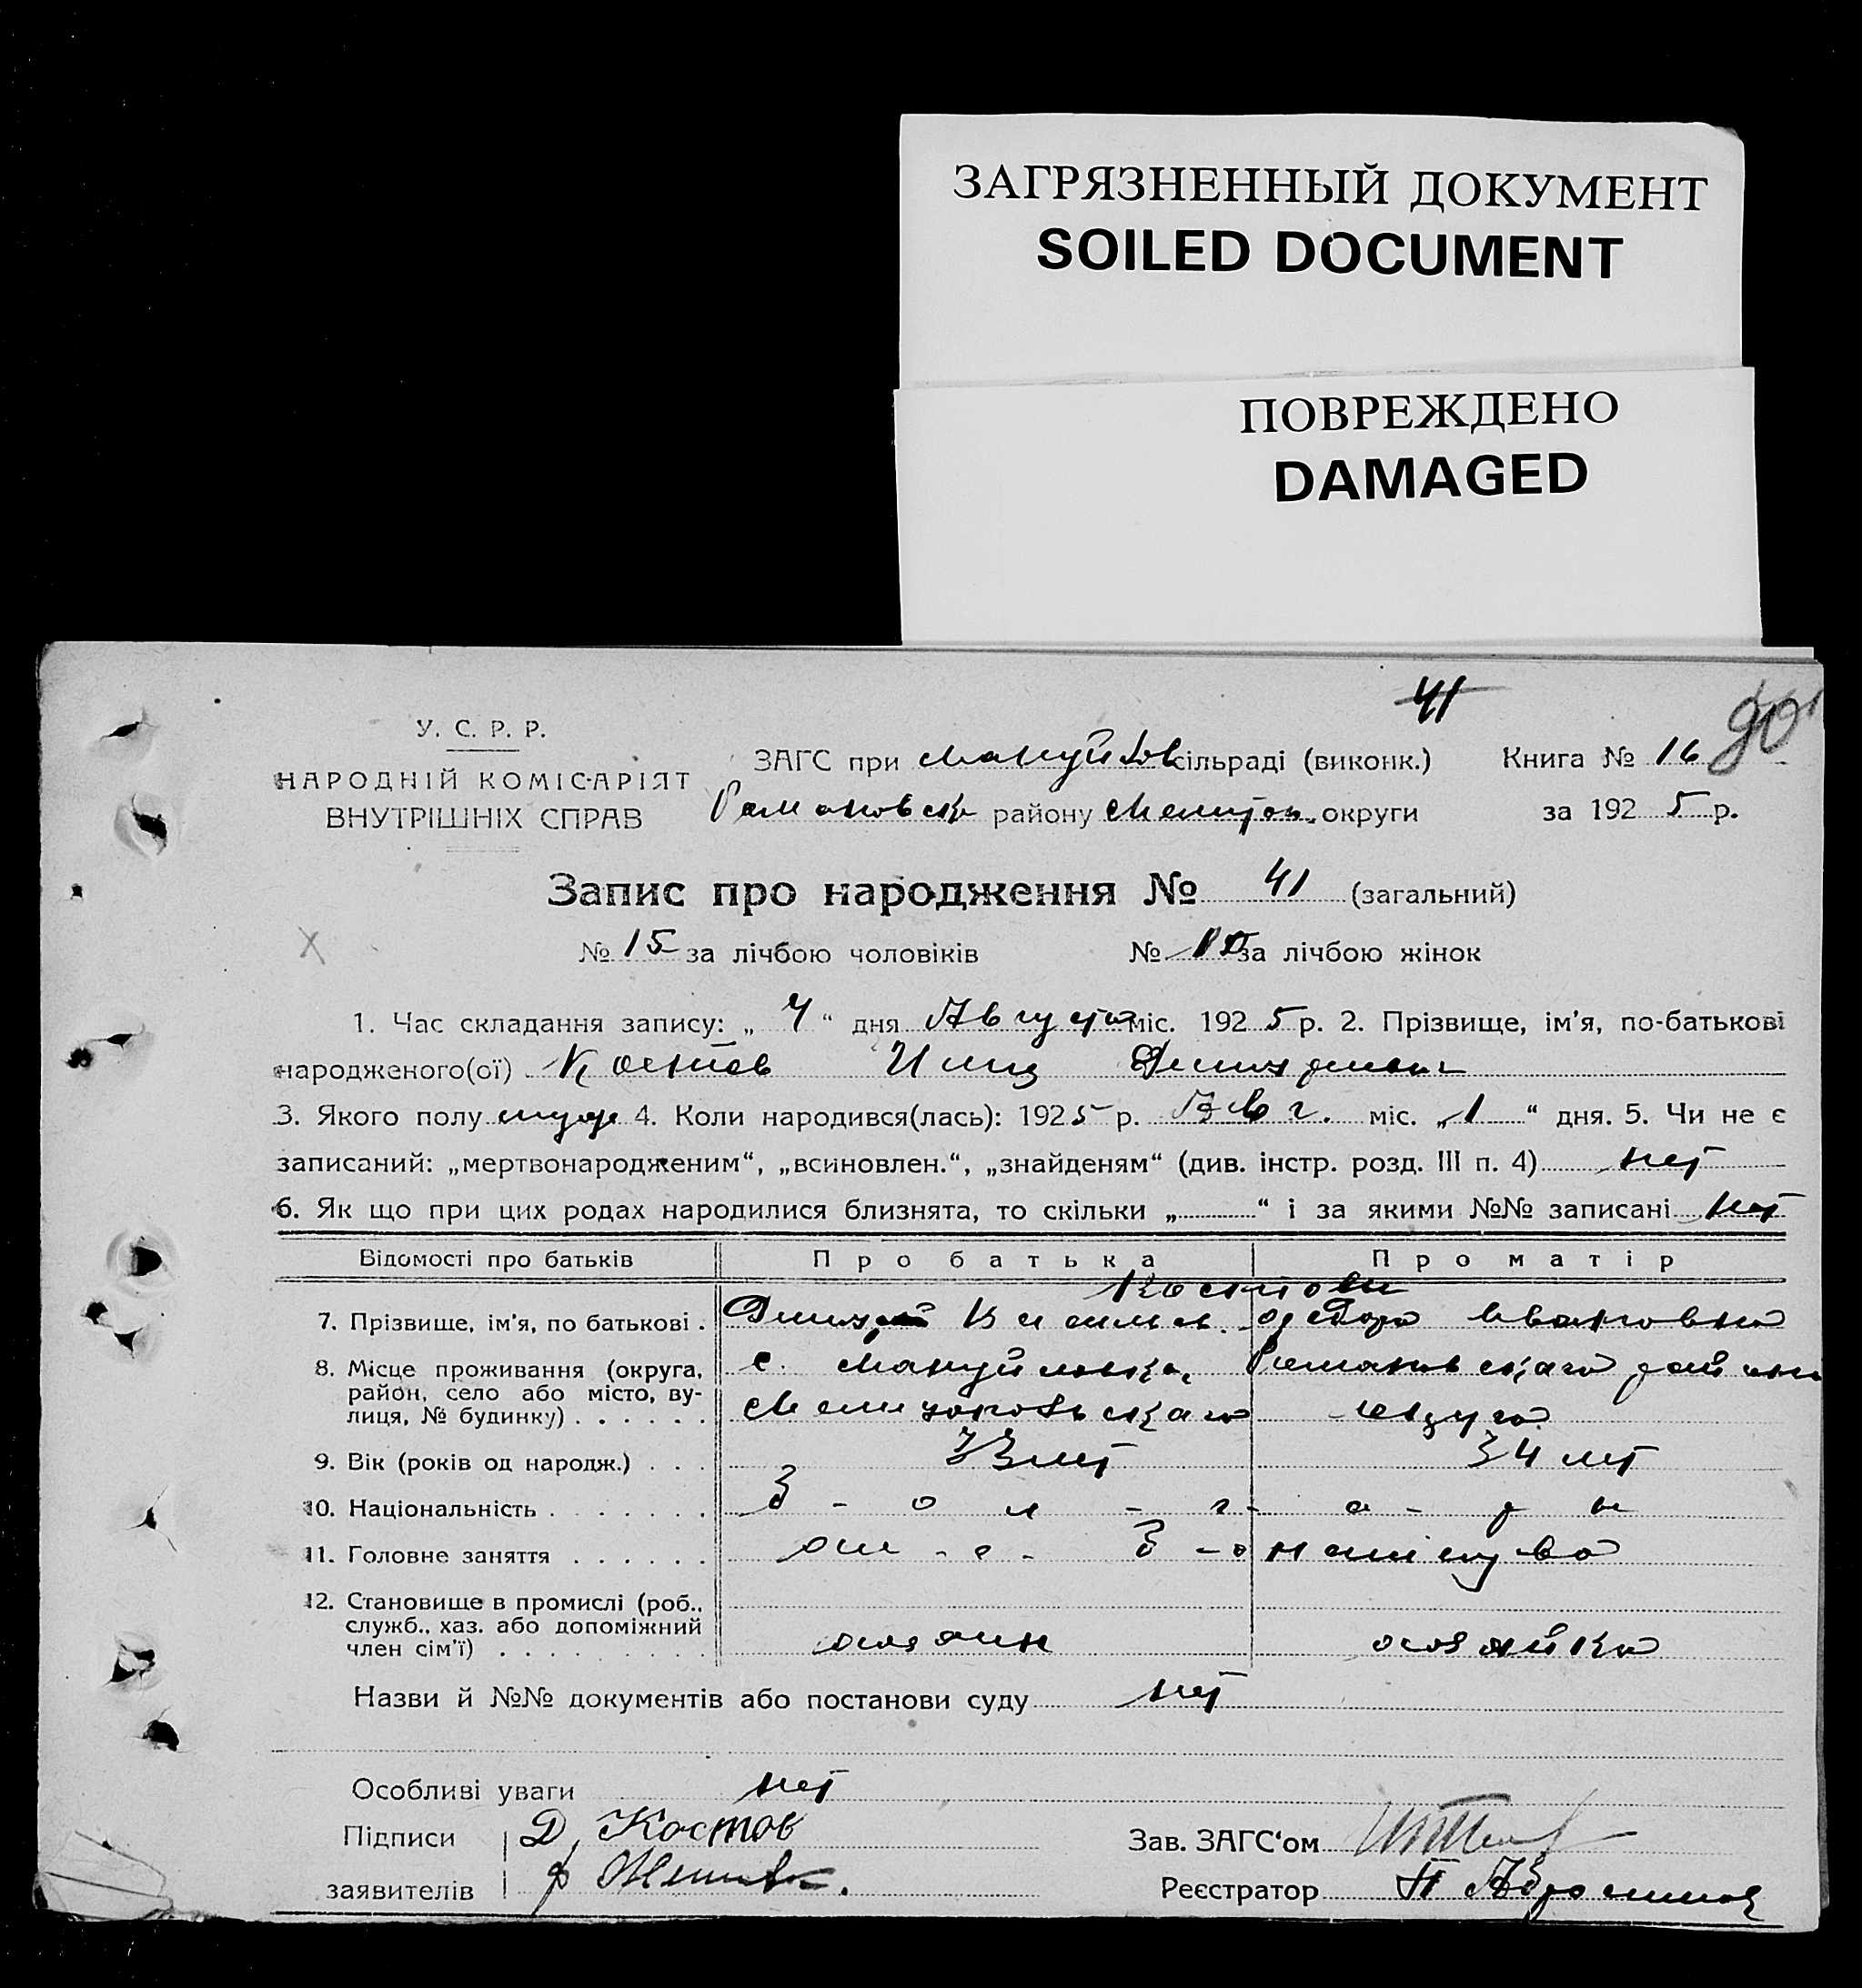 ЗАГРЯЗНЕННЫЙ ДОКУМЕНТ
SOILED DOCUMENT
ПОВРЕЖДЕНО
DAMAGED
41
У. С. Р. Р.
НАРОДНІЙ КОМІСАРІЯТ
ВНУТРІШНІХ СПРАВ
ЗАГС при Мануйлов сільраді (виконк.) Книга № 16
Романовск района Мелитоп. округи за 1925 р.
Запис про народження № 41 (загальний)
№ 15 за лічбою чоловіків № за лічбою жінок
1. Час складання запису: „ 4 “ дня Августа міс. 1925 р. 2. Прізвище, ім'я, по-батькові
народженого(ої) Костов Илия
3. Якого полу муж 4. Коли народився(лась): 1925 р. Авг. міс. „ 1 “ дня. 5. Чи не є
записаний: „мертвонародженим“, „всиновлен.“, „знайденям“ (див. інстр. розд. III п. 4) нет
6. Як що при цих родах народилися близнята, то скільки „ “ і за якими №№ записані нет
Відомості про батьків Про батька Про матір
Костови
7. Прізвище, ім'я, по батькові . Ивановна
8. Місце проживання (округа, район, село або місто, вулиця, № будинку) . . . . . . с. Мануйловка, Романовскаго района
Мелитопольскаго округа
9. Вік (років од народж.) . . . 33 лет 34 лет
10. Національність . . . . . . . Б - о л - г - а - р ы
11. Головне заняття . . . . . .
12. Становище в промислі (роб., служб., хаз. або допоміжний член сім'ї) . . . . . . . . . хозяин хозяйка
Назви й №№ документів або постанови суду нет
Особливі уваги нет
Підписи Д. Костов Зав. ЗАГС'ом
заявителів Реєстратор